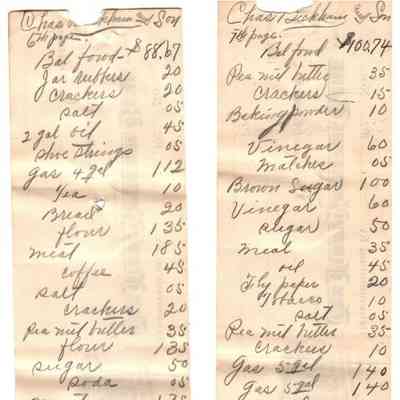 Chas Beckham and Son
6th page.
Bal ford → $88.67
Jar rubbers 20
Crackers 20
Salt 05
2 gal oil 45
Shoe Strings 05
Gas 4 gal 112
Tea 10
Bread 20
flour 135
meat 185
coffee 45
Salt 05
Crackers 20
Pea nut butter 35
flour 135
Sugar 50
Soda 05
135
Chas Beckham and Son
7th page.
Bal ford $100.74
Pea nut butter 35
Crackers 15
Baking powder 10
Vinegar 60
matches 05
Brown Sugar 100
Vinegar 60
Sugar 50
meal 35
oil 45
Fly paper 20
Tobacco 10
Salt 05
Pea nut butter 35
Crackers 10
Gas 5 gal 140
Gas 5 gal 140